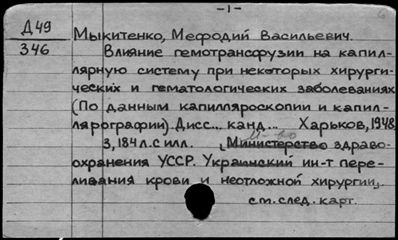 -1-
Д49
346
Мыкитенко, Мефодий Васильевич.
Влияние гемотрансфузии на капил-
лярную систему при некоторых хирурги-
ческих и гематологических заболеваниях
(По данным капилляроскопии и капил-
лярографии). Дисс... канд... Харьков, 1948,
3, 184 л. с илл. М-во
Министерство здраво-
охранения УССР. Украинский ин-т пере-
ливания крови и неотложной хирургии,
см. след. карт.